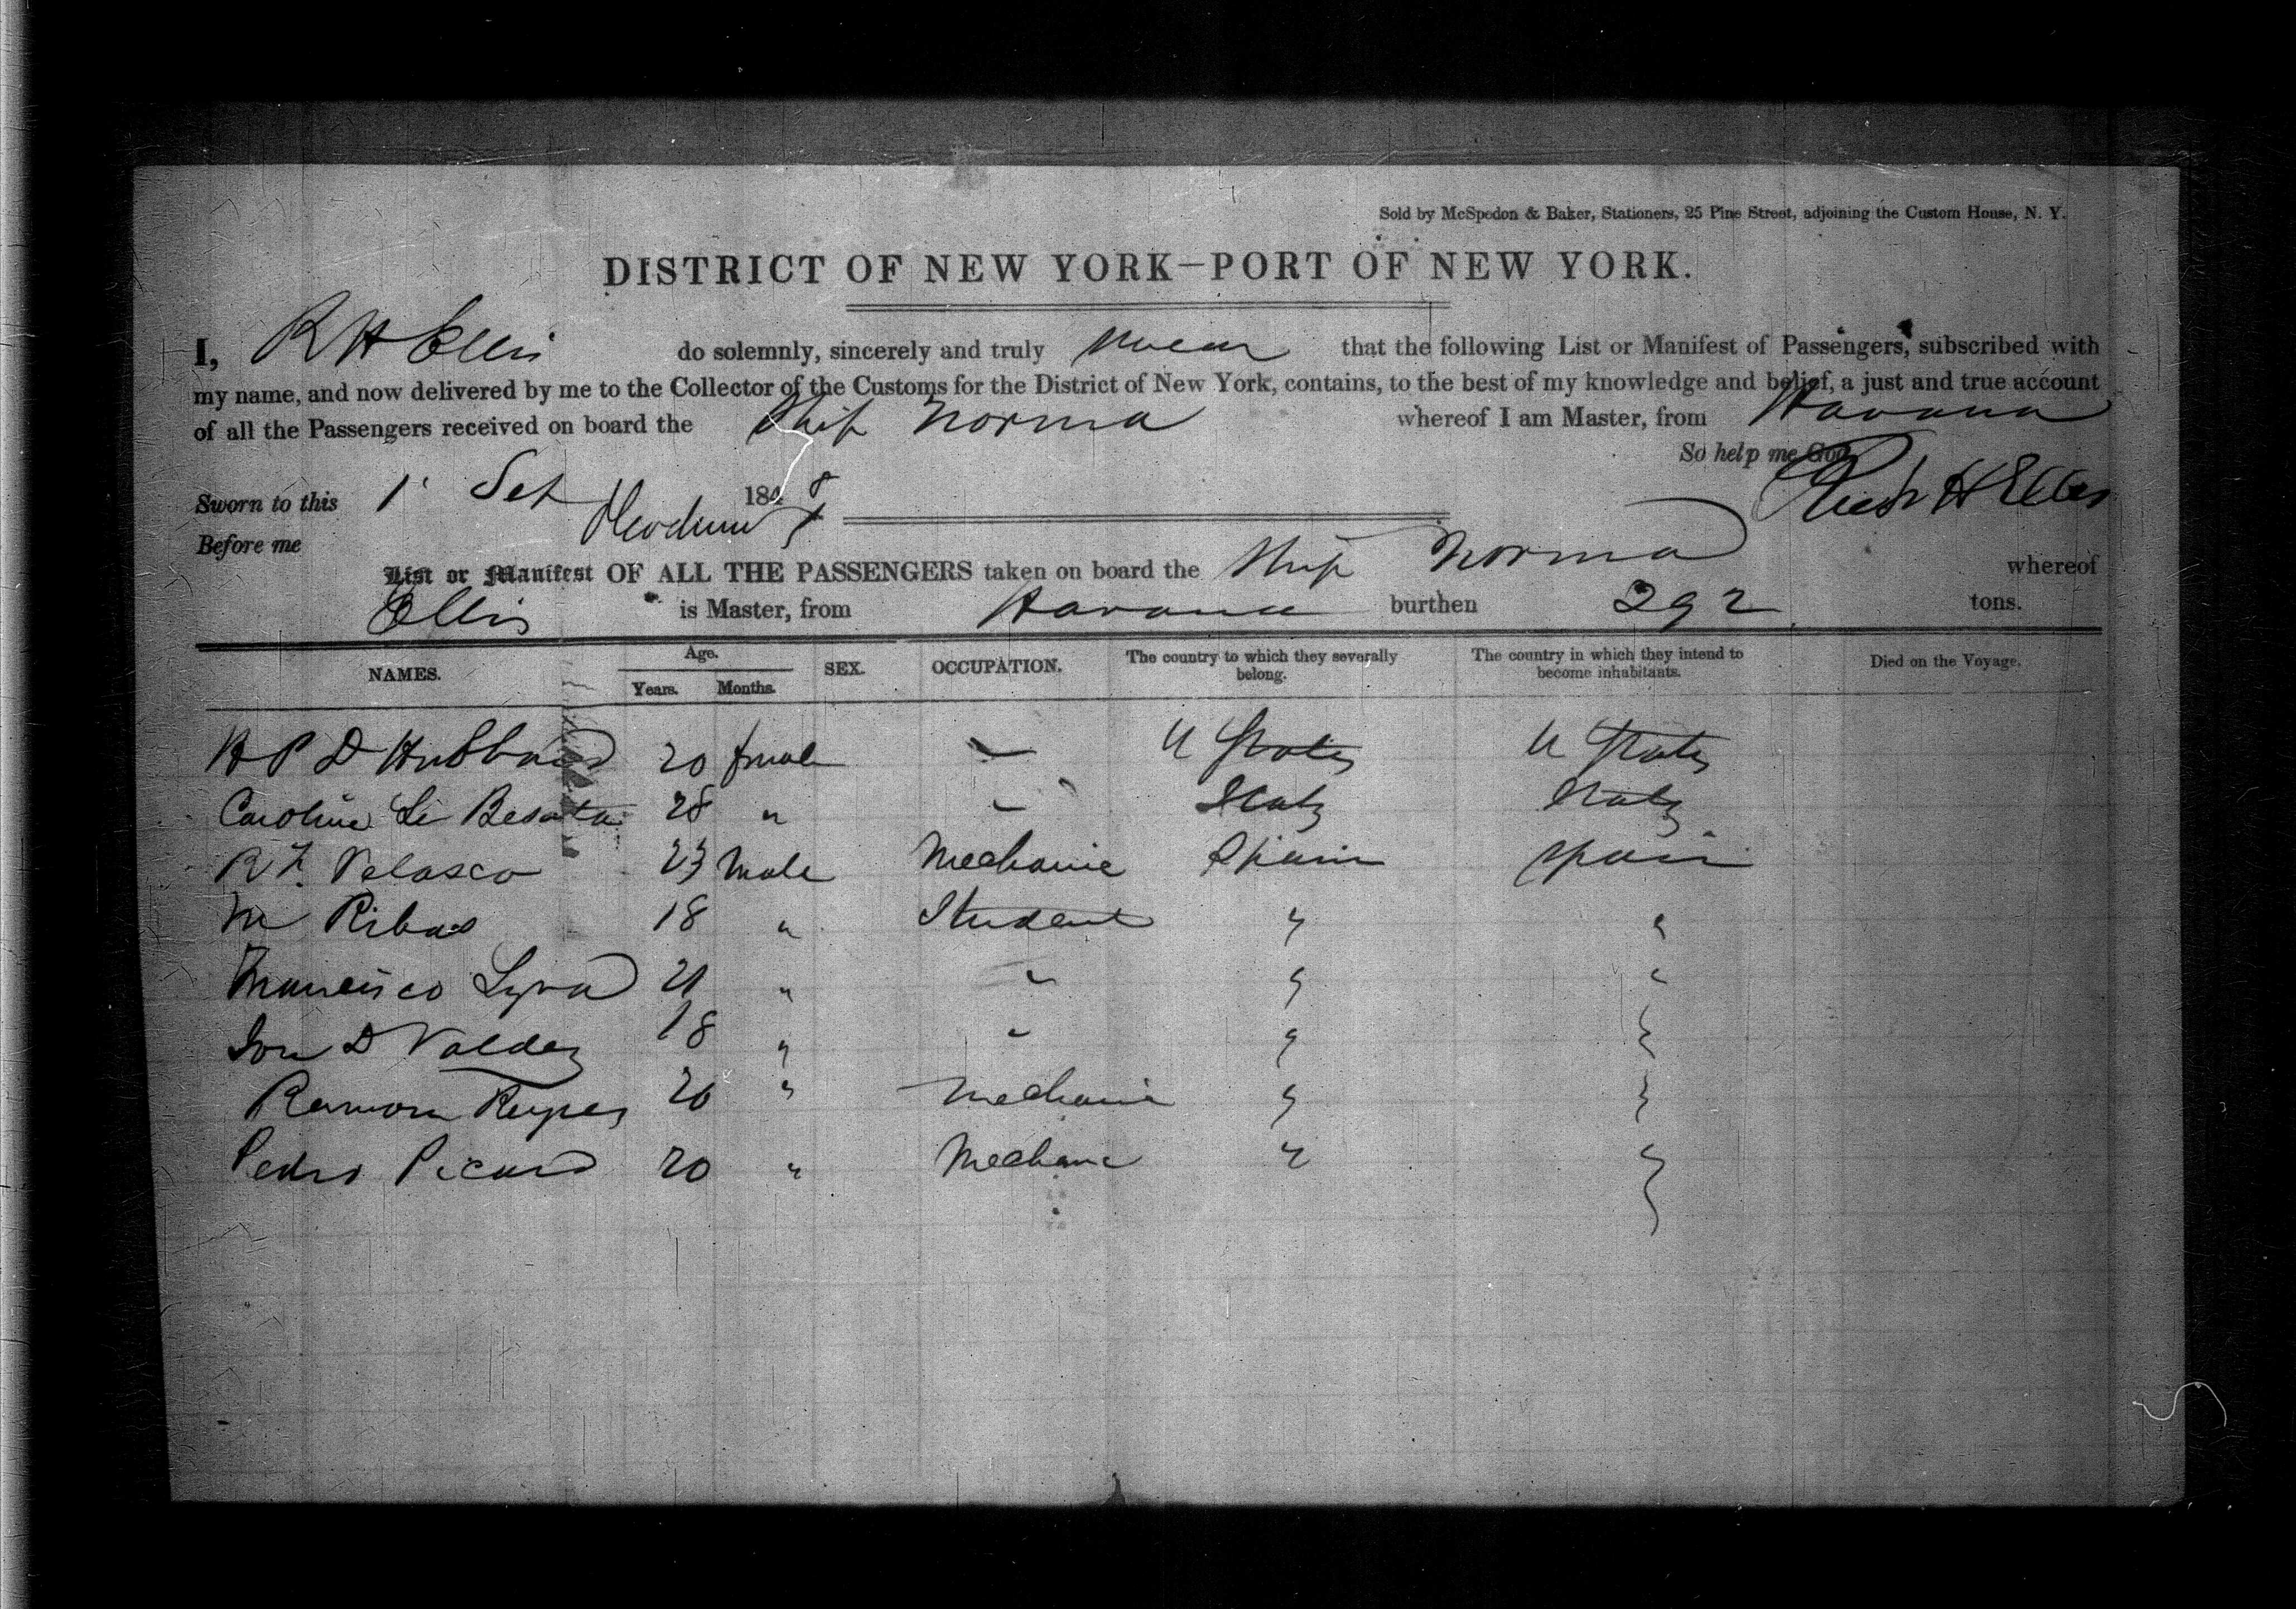 Sold by McSpedon & Baker, Stationers, 25 Pine Street, adjoining the Custom House, N. Y.
DISTRICT OF NEW YORK—PORT OF NEW YORK.
I, R H Ellis do solemnly, sincerely and truly swear that the following List or Manifest of Passengers, subscribed with
my name, and now delivered by me to the Collector of the Customs for the District of New York, contains, to the best of my knowledge and belief, a just and true account
of all the Passengers received on board the Ship Norma whereof I am Master, from Havana
So help me God
Sworn to this 1 1848 H Ellis
Before me
List or Manifest OF ALL THE PASSENGERS taken on board the Ship Norma whereof
Ellis is Master, from Havana burthen 292 tons.
NAMES. Age. Years. Months. SEX. OCCUPATION. The country to which they severally belong. The country in which they intend to become inhabitants. Died on the Voyage.
H P D Hubbard 20 female — U States U States
Caroline Besata 28 " - Italy Italy
R F. Velasco 23 Male Mechanic Spain Spain
M Ribas 18 " Student " "
Francisco Lyra 21 " " " "
D Valdez 18 " " " "
Ramon Reyes 20 " Mechanic " "
Pedro Picard 20 " Mechanic " "